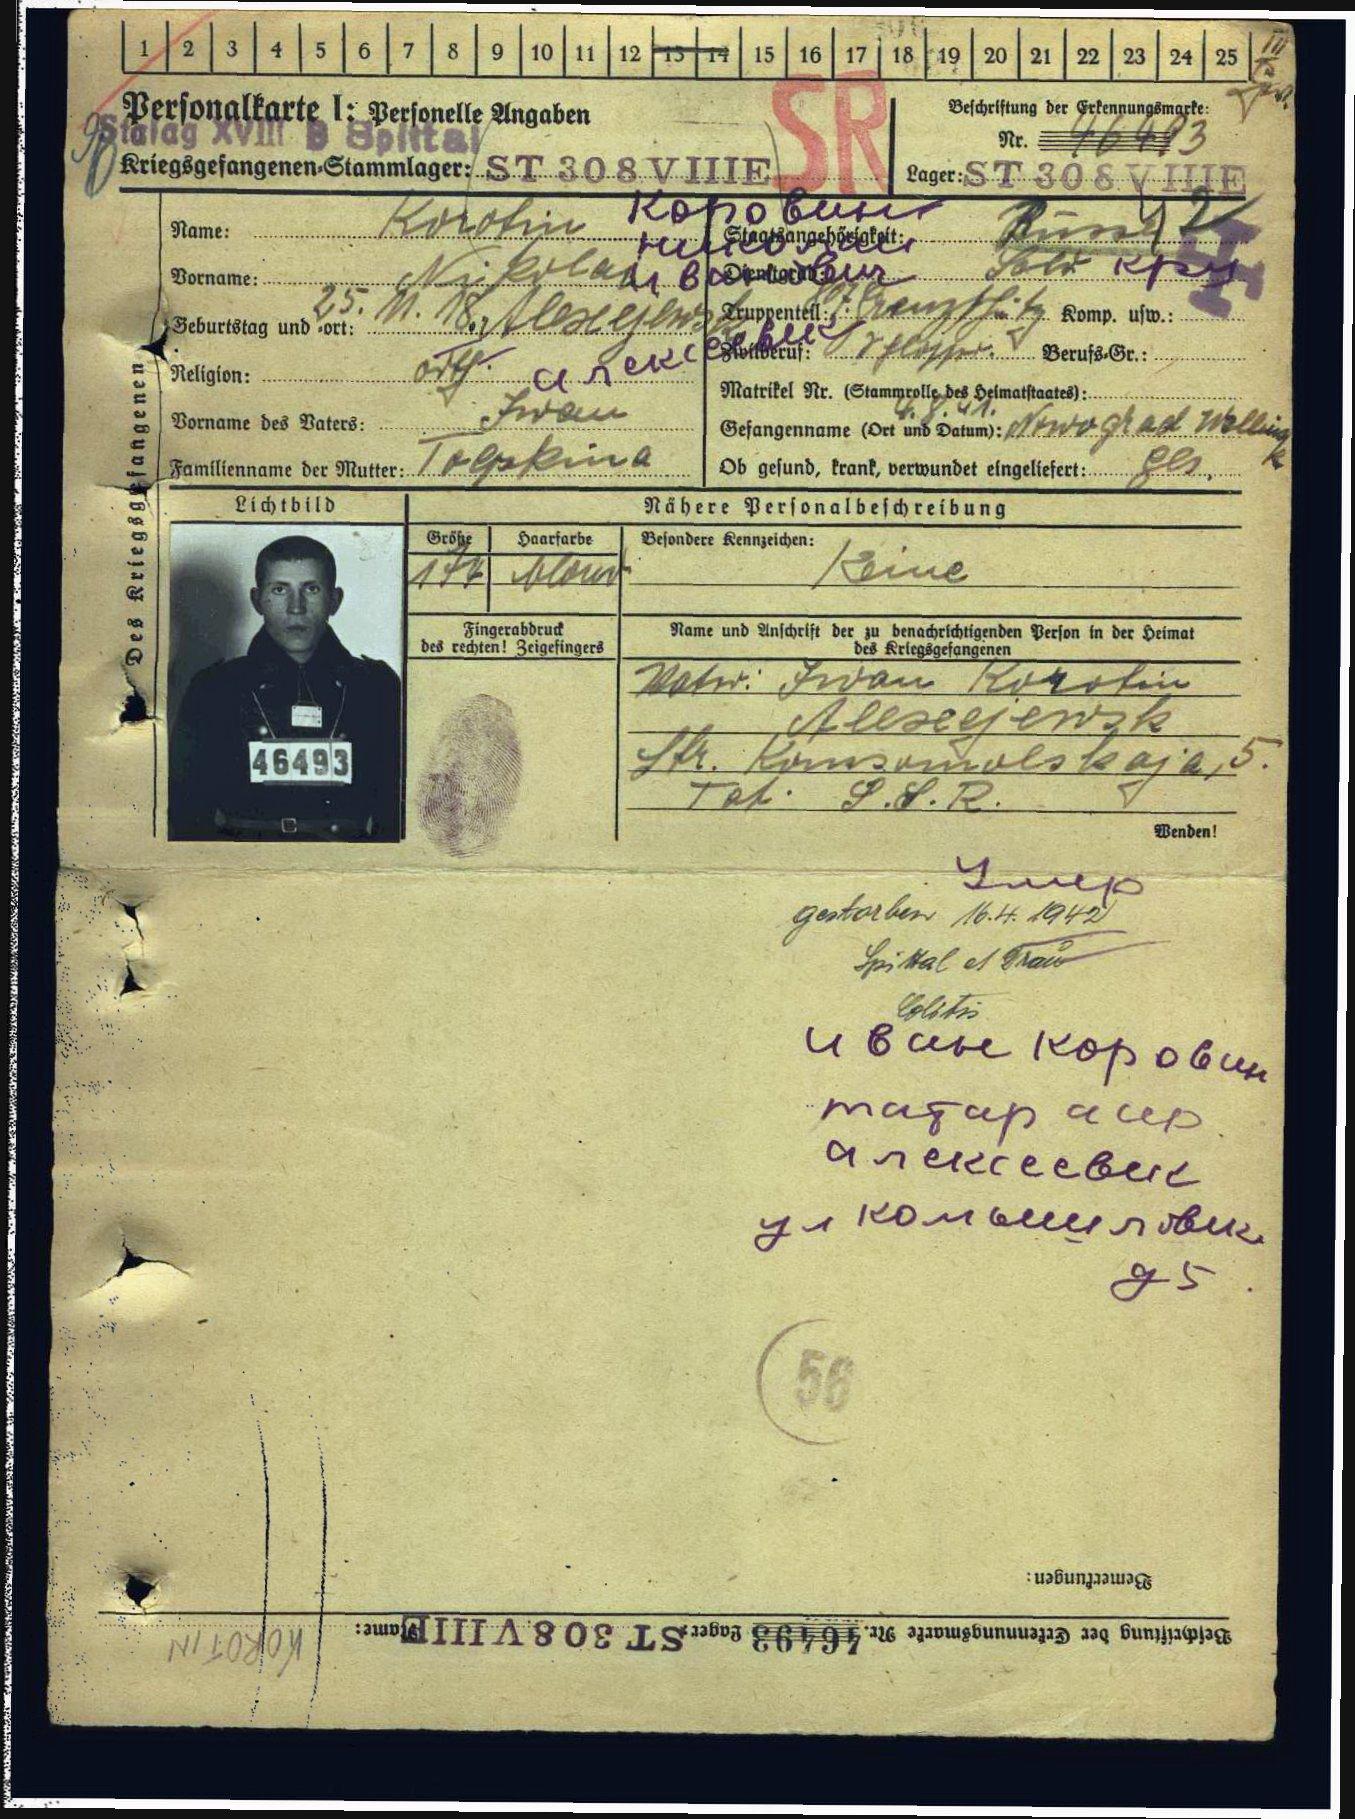 1 2 3 4 5 6 7 8 9 10 11 12 13 14 15 16 17 18 19 20 21 22 23 24 25
Personalkarte I: Personelle Angaben
Stalag XVIII B Spittal
Kriegsgefangenen-Stammlager: ST 308 VIIIE
SR
Beschriftung der Erkennungsmarke:
Nr. 46493
Lager: ST 308 VIIIE
Des Kriegsgefangenen
Name: Korotin
Коровин
Vorname: Nikolai
николаи
иванович
Geburtstag und -ort: 25. 11. 18. Alexejewsk
алексеевик
Religion: orth.
Vorname des Vaters: Iwan
Familienname der Mutter: Tolpskina
Staatsangehörigkeit: Russe
Dienstgrad: Sold кру
Truppenteil: Komp. usw.:
Zivilberuf: Berufs-Gr.:
Matrikel Nr. (Stammrolle des Heimatstaates):
Gefangenname (Ort und Datum): 4. 8. 41. Nowograd Wollinsk
Ob gesund, krank, verwundet eingeliefert: ges.
Lichtbild
Nähere Personalbeschreibung
Größe
Haarfarbe
Besondere Kennzeichen:
blond
Keine
46493
Fingerabdruck
des rechten! Zeigefingers
Name und Anschrift der zu benachrichtigenden Person in der Heimat
des Kriegsgefangenen
Vater: Iwan Korotin
Alexejewsk
Str. Komsomolskaja, 5.
Tat. S.S.R.
Wenden!
Умер
gestorben 16.4.1942
Spittal a/Drau
Colitis
иван коровин
татар асср
алексеевик
ул
д 5
56
Bemerkungen:
Beschriftung der Erkennungsmarke Nr. 46493 Lager: ST 308 VIIIE Name:
KOROTIN